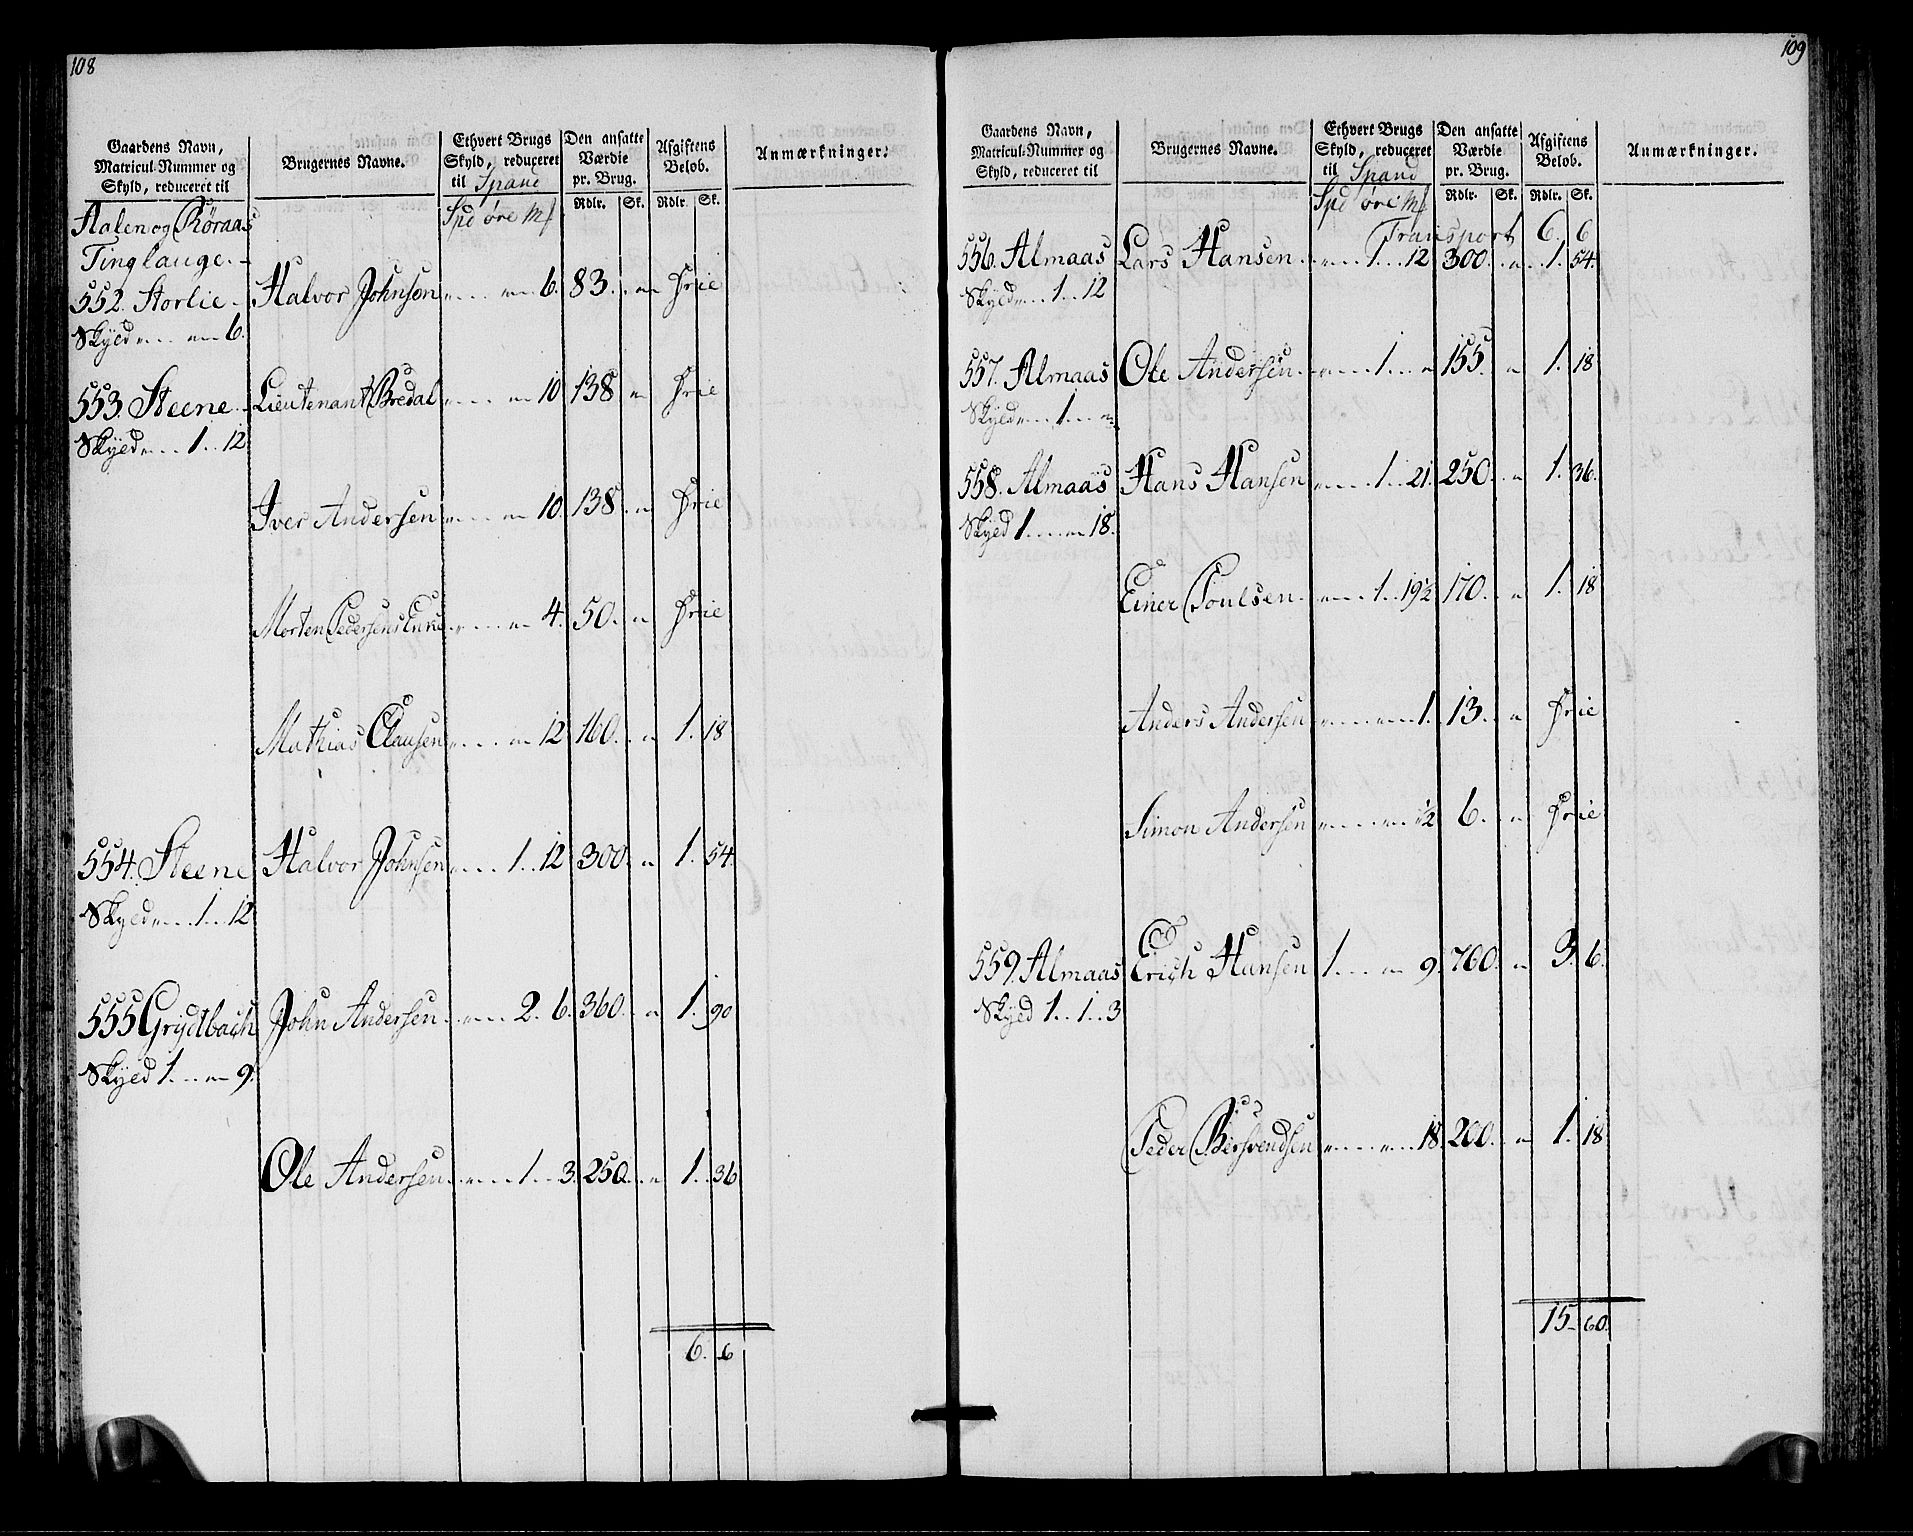 108
Gaardens Navn, Matricul-Nummer og Skyld, reduceret til
Brugernes Navne.
Ethvert Brugs Skyld, reduceret til Spand
Den ansatte Værdie pr. Brug.
Afgiftens Beløb.
Anmærkninger.
Spd øre Mſ Rdlr. Sk. Rdlr. Sk.
Aalen og Røraas
Tinglauge.
552. Storlie Halvor Johnson 6. 83. Frie
Skyld 6.
553. Steene Lieutenant Bredal 10 138 Frie
Skyld 1 12
Iver Andersen 10. 138. Frie
Morten Pedersens Enke 4. 50. Frie
Mathias Clausen 12 160. 1. 18
554. Steene Halvor Johnsen 1 12 300. 1. 54.
Skyld 1 12
555 Grydtbach John Andersen 2. 6. 360. 1. 90
Skyld 1 9.
Ole Andersen 1 3. 250. 1. 36
6. 6
109
Gaardens Navn, Matricul-Nummer og Skyld, reduceret til
Brugernes Navne.
Ethvert Brugs Skyld, reduceret til Spand
Den ansatte Værdie pr. Brug.
Afgiftens Beløb.
Anmærkninger.
Spd øre Mſ Rdlr. Sk. Rdlr. Sk.
Transport 6. 6
556. Almaas Lars Hansen 1 12 300. 1. 54.
Skyld 1 12
557. Almaas Ole Andersen 1 155. 1. 18
Skyld 1
558. Almaas Hans Hansen 1 21. 250. 1. 36.
Skyld 1 18.
Einer Poulsen 1 19½ 170. 1. 18
Anders Andersen 1. 13. Frie
Simon Andersen ½ 6. Frie
559. Almaas Erich Hansen 1 9. 760. 3. 6.
Skyld 1 1 3
Peder Bersvendsen 18. 200. 1. 18
15 60.